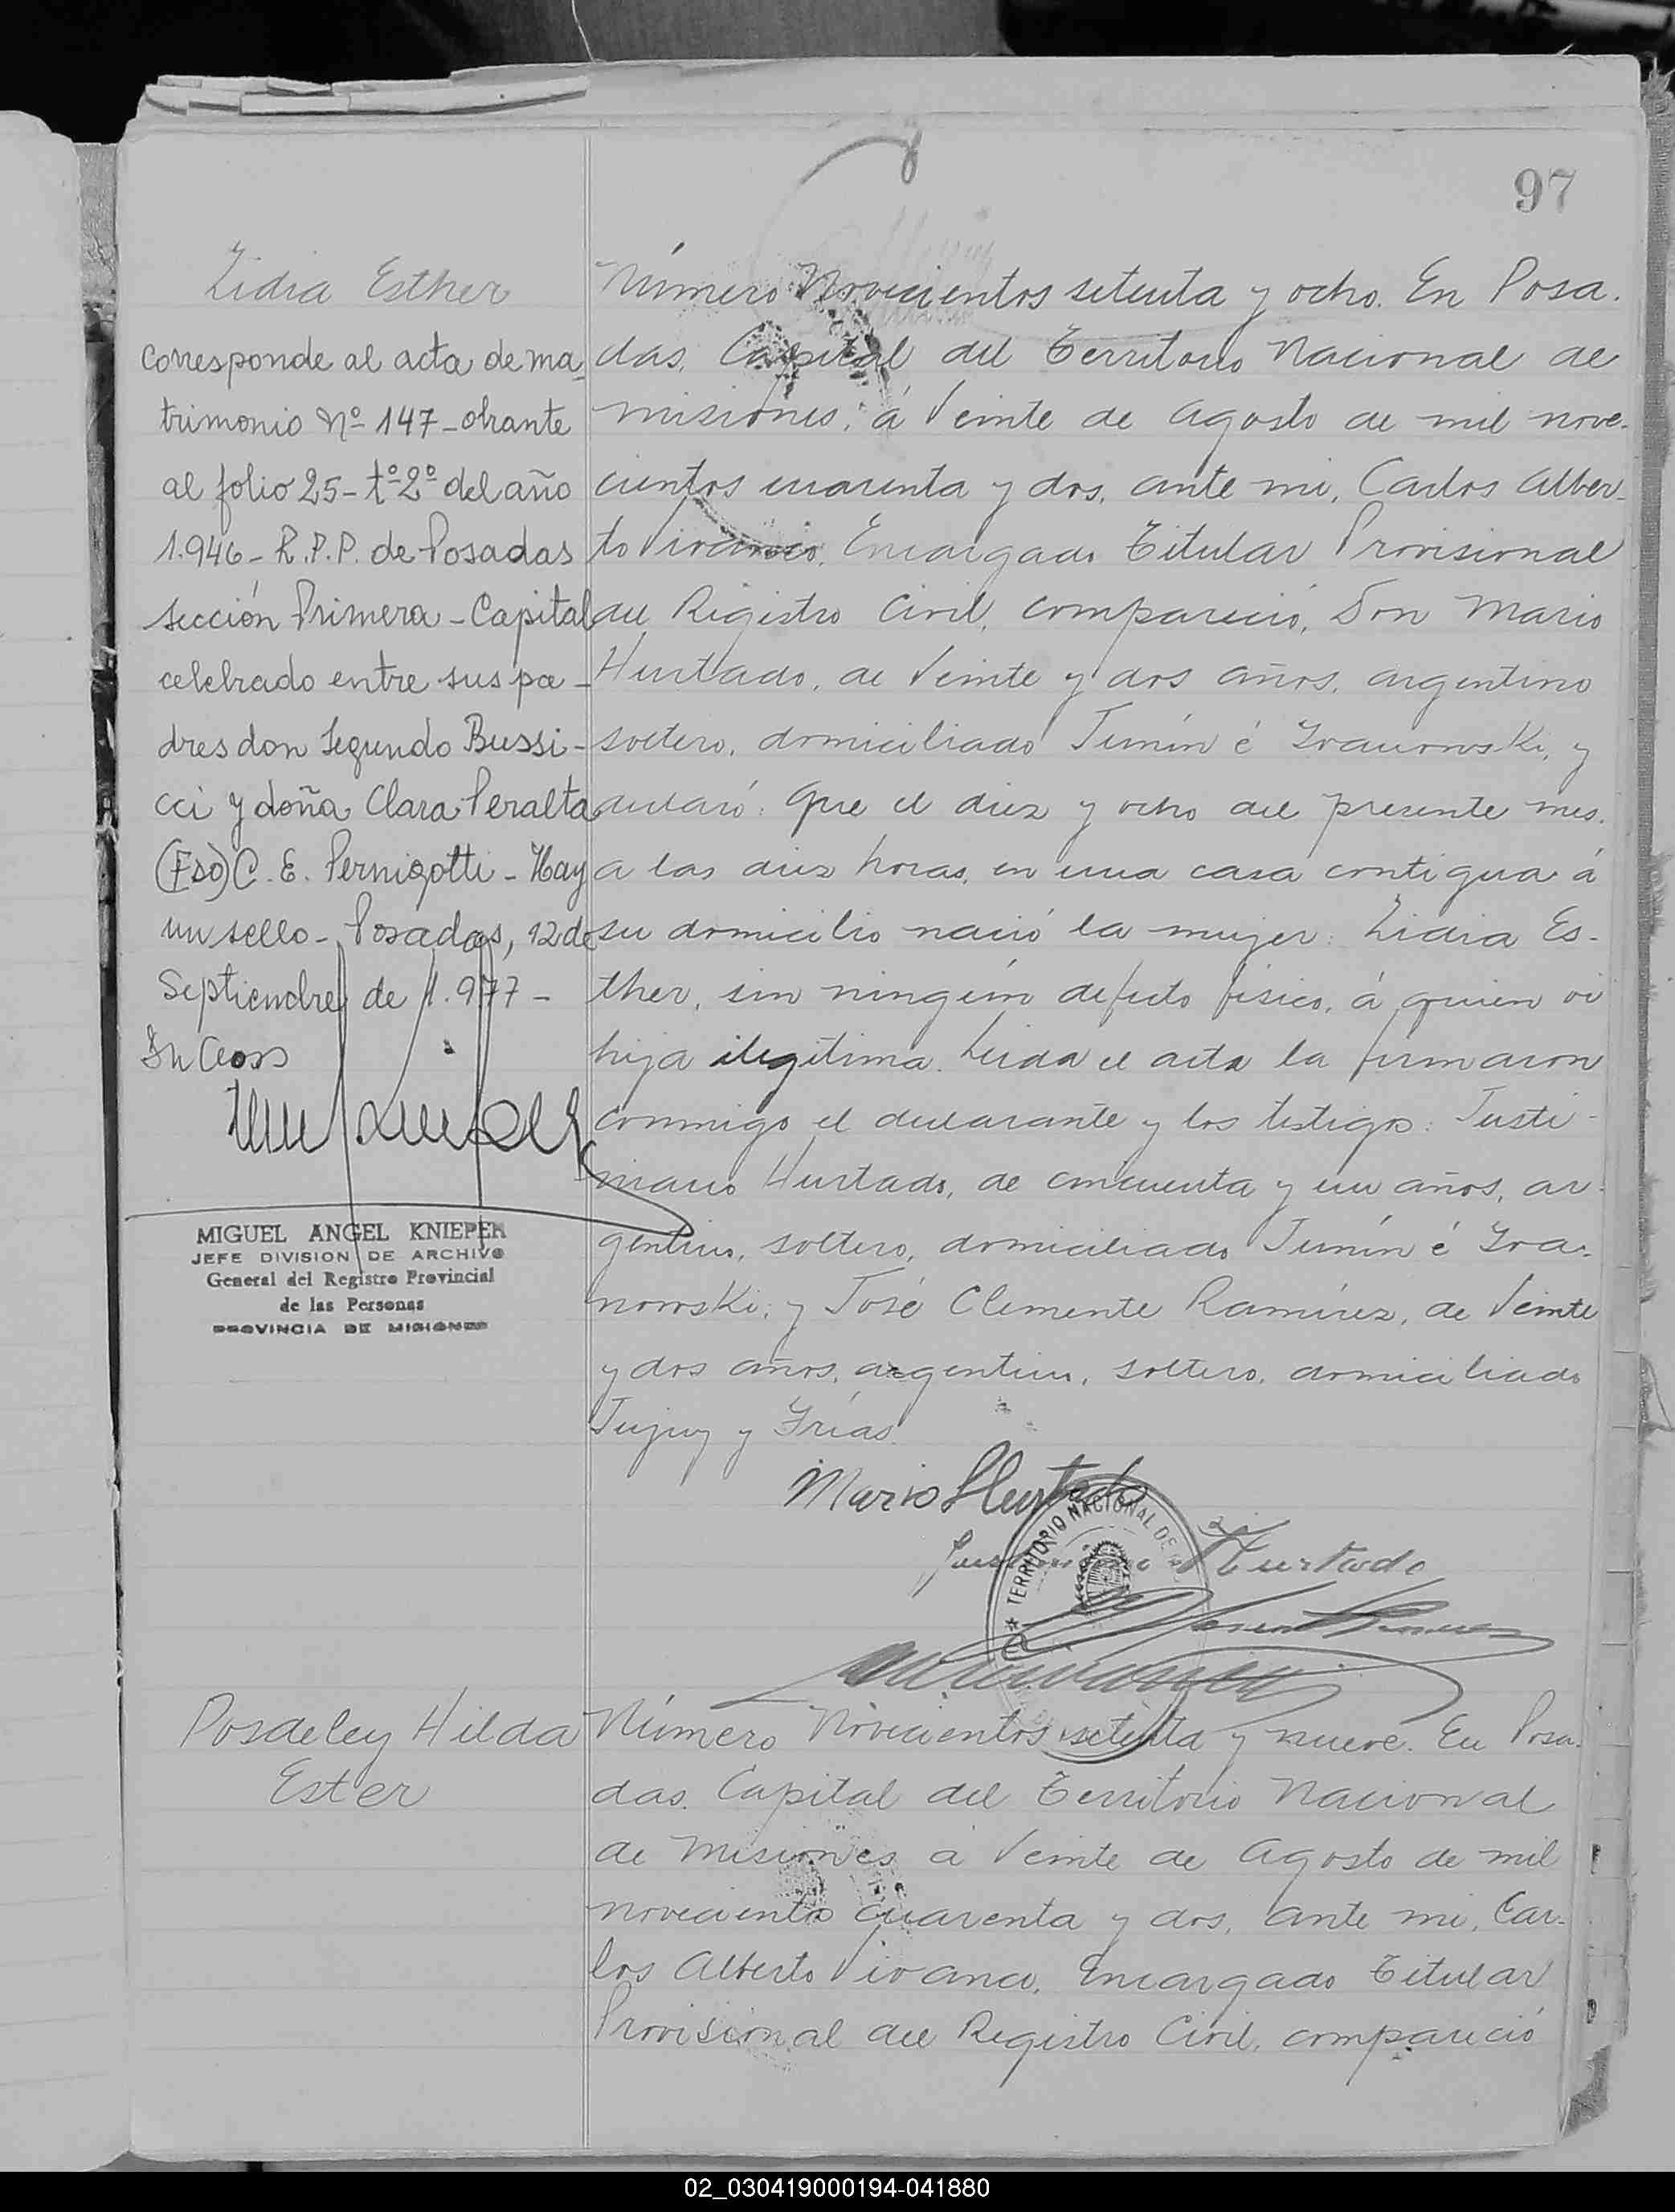 97
Lidia Esther
corresponde al acta de ma-
trimonio Nº 147 - obrante
al folio 25 - tº 2º del año
1.946 - R.P.P. de Posadas
sección Primera - Capital
celebrado entre sus pa-
dres don Segundo Bussi-
cci y doña Clara Peralta
(Fdo) C. E. Pernigotti - Hay
un sello - Posadas, 12 de
Septiembre de 1.977 -
MIGUEL ANGEL KNIEPER
JEFE DIVISION DE ARCHIVO
General del Registro Provincial
de las Personas
PROVINCIA DE MISIONES
Número Novecientos setenta y ocho. En Posa-
das, Capital del Territorio Nacional de
Misiones, á Veinte de Agosto de mil nove-
cientos cuarenta y dos, ante mi, Carlos Alber-
to Vivanco, Encargado Titular Provisional
del Registro Civil, compareció, Don Mario
Hurtado, de Veinte y dos años, argentino
soltero, domiciliado Junín é Yvanowski, y
declaró: Que el diez y ocho del presente mes.
a las diez horas, en una casa contigua á
su domicilio nació la mujer: Lidia Es-
ther, sin ningún defecto físico, á quien vi
hija ilegítima. Leida el acta la firmaron
conmigo el declarante y los testigos: Justi-
niano Hurtado, de cincuenta y un años, ar-
gentino, soltero, domiciliado Junín é Yva-
nowski; y José Clemente Ramírez, de Veinte
y dos años, argentino, soltero, domiciliado
Jujuy y Frías.
Mario Hurtado
Justiniano Hurtado
TERRITORIO NACIONAL DE
Posdeley Hilda
Ester
Número Novecientos setenta y nueve. En Posa-
das. Capital del Territorio Nacional
de Misiones á Veinte de Agosto de mil
novecientos cuarenta y dos, ante mi, Car-
los Alberto Vivanco, Encargado Titular
Provisional del Registro Civil, compareció
02_030419000194-041880